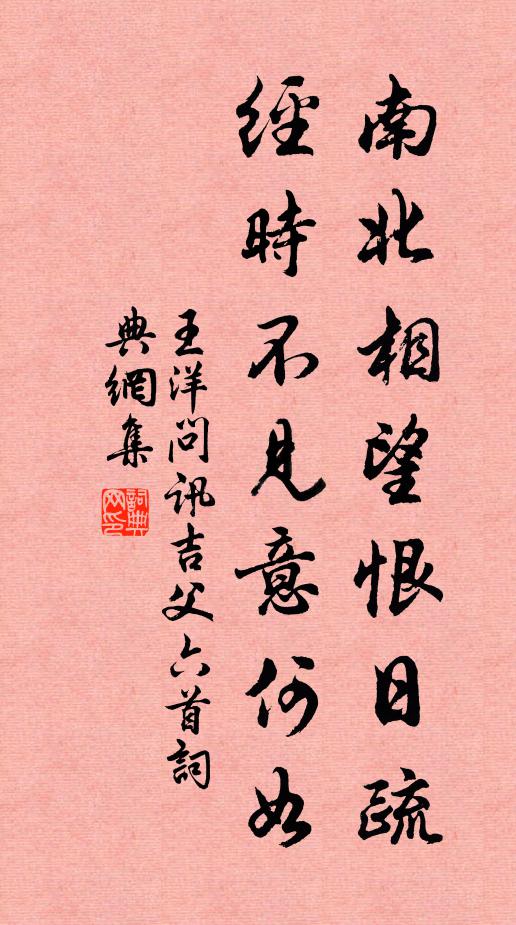 南北相望恨日疏
經時不見意何如
王洋問訊吉父六首詞
典網集
詞典網印